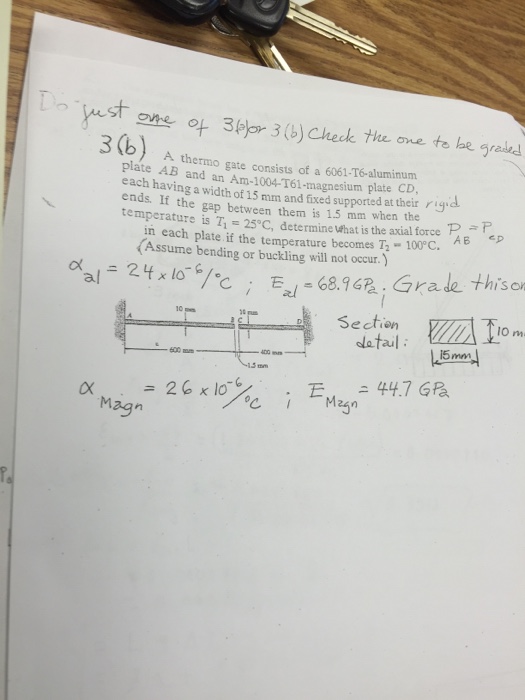 Do just one of 3(a) or 3(b) Check the one to be graded
3(b) A thermo gate consists of a 6061-T6-aluminum
plate AB and an Am-1004-T61-magnesium plate CD,
each having a width of 15 mm and fixed supported at their rigid
ends. If the gap between them is 1.5 mm when the
temperature is T₁ = 25°C, determine What is the axial force P_AB = P_CD
in each plate if the temperature becomes T₂ = 100°C.
(Assume bending or buckling will not occur.)
α_al = 24 x 10⁻⁶/°C ; E_al = 68.9 GPa; Grade this on
10 mm
10 mm
A B C D
600 mm
400 mm
1.5 mm
Section
detail:
10 m
15mm
α_Magn = 26 x 10⁻⁶/°C ; E_Magn = 44.7 GPa